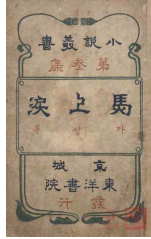 小說叢書
第叁集
馬上淚
마상루
京城
東洋書院
發行